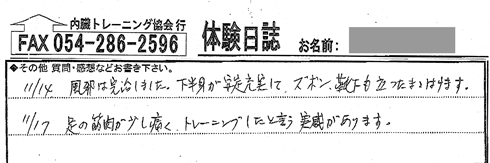 内臓トレーニング協会 行
FAX 054-286-2596
体験日誌
お名前:
◆その他 質問・感想などお書き下さい。
11/14 風邪は完治しました。下半身が安定充足して、ズボン、靴下も立ったまゝはけます。
11/17 足の筋肉が少し痛く、トレーニングしたと言う実感があります。